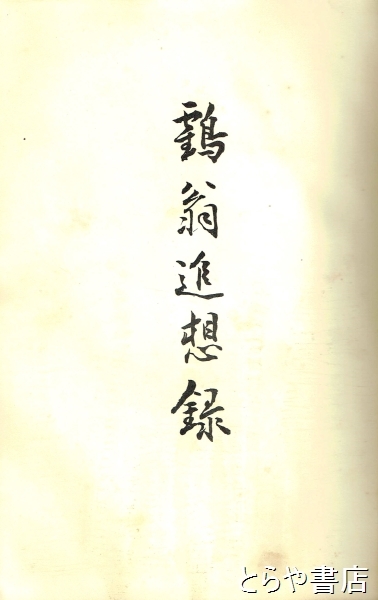 鸖翁進想録
とらや書店